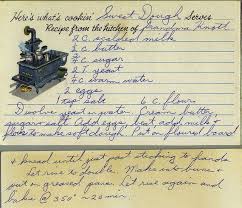 Here's what's cookin' Sweet Dough Serves
Recipe from the kitchen of Grandma Knott
2 C. scalded milk
1/2 C. butter
3/4 C. sugar
2 T. yeast
1/2 C. warm water
2 eggs
1 tsp salt 6 C. flour
Disolve yeast in water. Cream butter,
sugar & salt. Add eggs, beat, add milk &
flour to make soft dough. Put on floured board
& knead until just past sticking to hands.
Let rise to double. Make into buns &
put on greased pans. Let rise again and
bake @ 350° ~ 25 min.